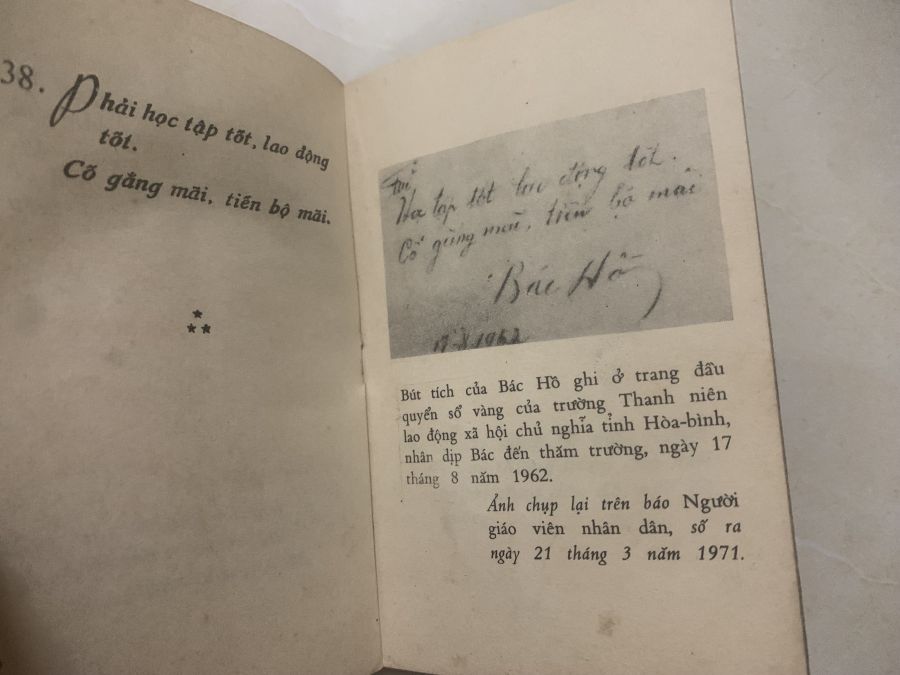 38. Phải học tập tốt, lao động
tốt.
Cố gắng mãi, tiến bộ mãi.
Học tập tốt lao động tốt.
Cố gắng mãi, tiến bộ mãi
Bác Hồ
17-8-1962
Bút tích của Bác Hồ ghi ở trang đầu
quyển sổ vàng của trường Thanh niên
lao động xã hội chủ nghĩa tỉnh Hòa-bình,
nhân dịp Bác đến thăm trường, ngày 17
tháng 8 năm 1962.
Ảnh chụp lại trên báo Người
giáo viên nhân dân, số ra
ngày 21 tháng 3 năm 1971.